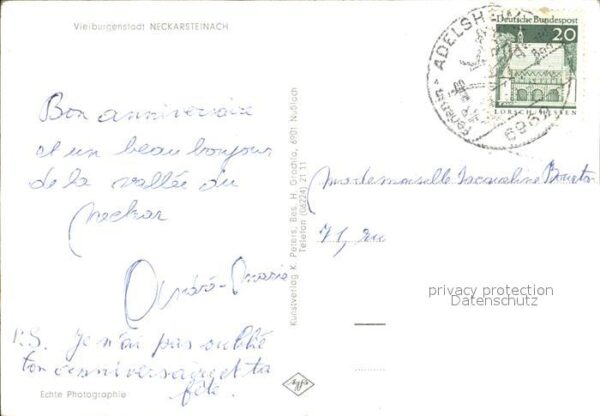 Vierburgenstadt NECKARSTEINACH
Bon anniversaire
et un beau bonjour
de la vallée du
Neckar
André-Marie
P.S. Je n'ai pas oublié
ton anniversaire et ta
fête.
Echte Photographie
Kunstverlag K. Peters, Bes. H. Grochla, 6901 Nußloch
Telefon (06224) 21 11
Mademoiselle Jacqueline
71, rue
Deutsche Bundespost
20
LORSCH/HESSEN
ADELSHEIM
6962
privacy protection
Datenschutz